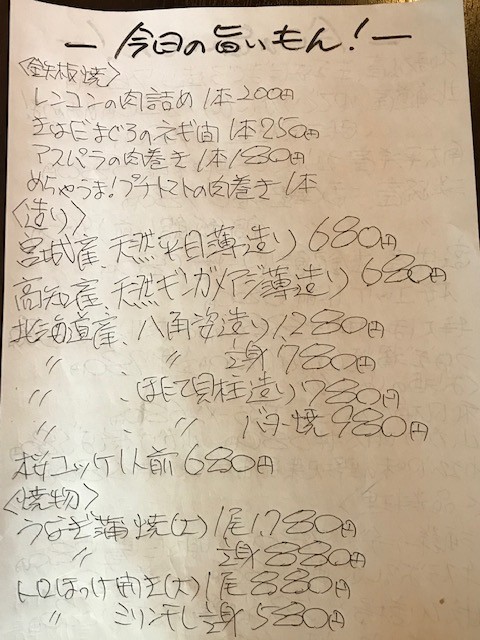 ー今日の旨いもん!ー
〈鉄板焼〉
レンコンの肉詰め 1本200円
きはだまぐろのネギ 1本250円
アスパラの肉巻き 1本180円
めちゃうま!プチトマトの肉巻き 1本
〈造り〉
宮城産、天然平目薄造り 680円
高知産、天然ギンガメアジ薄造り 680円
北海道産、八角姿造り 1,280円
〃 、 〃 半身 780円
〃 、ほたて貝柱造り 780円
〃 、 〃 バター焼 980円
桜ユッケ1人前 680円
〈焼物〉
うなぎ蒲焼(大) 1尾 1,780円
〃 半身 880円
トロほっけ開き(大) 1尾 880円
〃 ミリン干し半身 580円